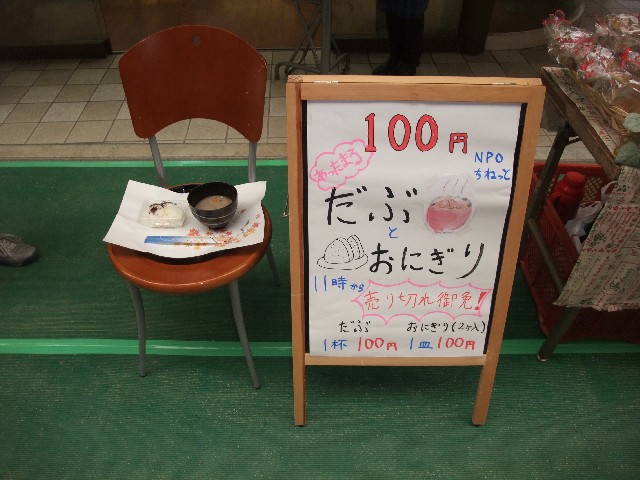 100円
NPO
ちねっと
あったまろ
だぶ
と
おにぎり
11時から
売り切れ御免!
だぶ おにぎり(2ヶ入)
1杯 100円 1皿 100円